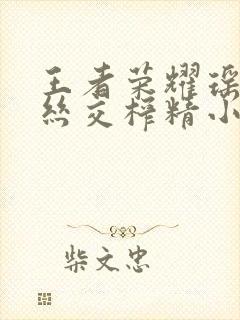 王者荣耀瑶
丝交榨精小
柴文忠